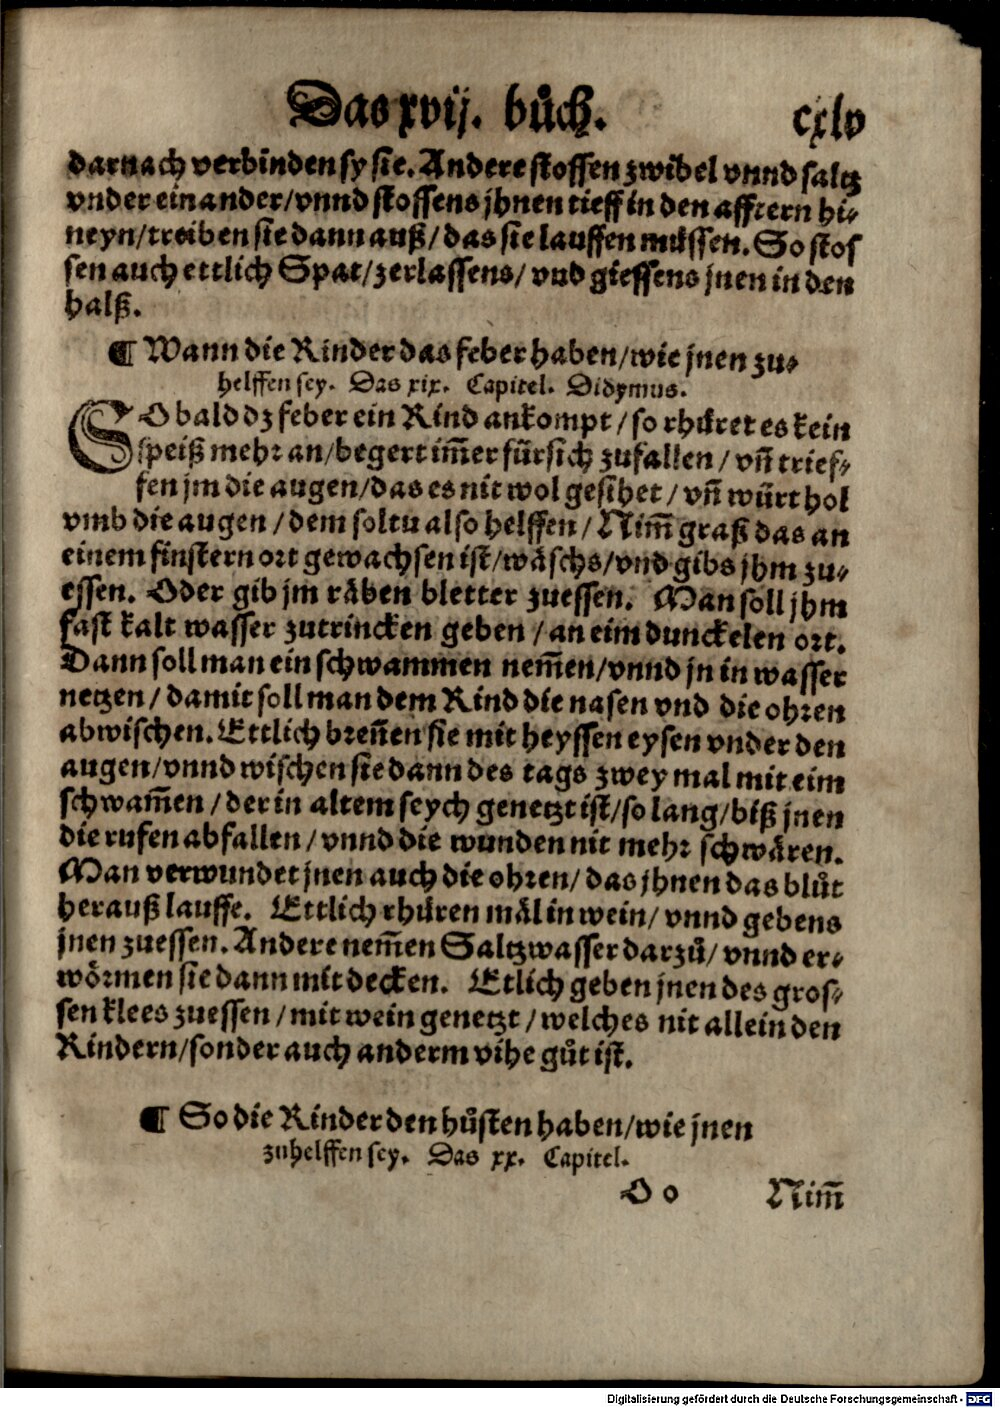 Das xvij. bůch. cxlv
darnach verbinden sy sie. Andere stossen zwibel vnnd saltz
vnder einander/vnnd stossens jhnen tieff in den afftern hi⸗
neyn/treiben sie dann auß/das sie lauffen müssen. So stos
sen auch ettlich Spat/zerlassens/vnd giessens jnen in den
halß.
¶ Wann die Rinder das feber haben/wie jnen zu⸗
helffen sey. Das xix. Capitel. Didymus.
SO bald dz feber ein Rind ankompt/so rhüret es kein
speiß mehr an/begert im̃er fürsich zufallen/vñ trief⸗
fen jm die augen/das es nit wol gesihet/vñ würt hol
vmb die augen/dem soltu also helffen/Nim̃ graß das an
einem finstern ort gewachsen ist/wäschs/vnd gibs jhm zu⸗
essen. Oder gib jm räben bletter zuessen. Man soll jhm
fast kalt wasser zutrincken geben/an eim dunckelen ort.
Dann soll man ein schwammen nem̃en/vnnd jn in wasser
netzen/damit soll man dem Rind die nasen vnd die ohren
abwischen. Ettlich breñen sie mit heyssen eysen vnder den
augen/vnnd wischen sie dann des tags zwey mal mit eim
schwam̃en/der in altem seych genetzt ist/so lang/biß jnen
die rufen abfallen/vnnd die wunden nit mehr schwären.
Man verwundet jnen auch die ohren/das jhnen das blůt
herauß lauffe. Ettlich rhüren mäl in wein/vnnd gebens
jnen zuessen. Andere nem̃en Saltzwasser darzů/vnnd er⸗
wörmen sie dann mit decken. Etlich geben jnen des gros⸗
sen klees zuessen/mit wein genetzt/welches nit allein den
Rindern/sonder auch anderm vihe gůt ist.
¶ So die Rinder den hůsten haben/wie jnen
zuhelffen sey. Das xx. Capitel.
O o Nim̃
Digitalisierung gefördert durch die Deutsche Forschungsgemeinschaft - DFG